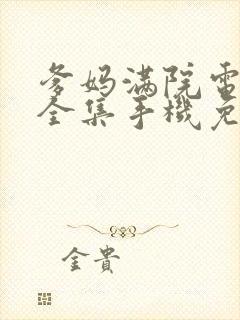 爹妈满院電
全集手機免
金貴